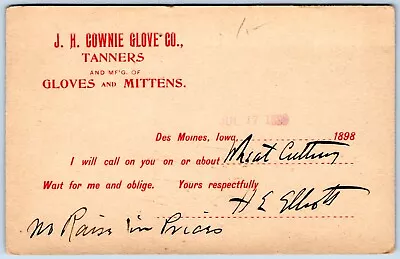 J. H. COWNIE GLOVE CO.,
TANNERS
AND M'F'G. OF
GLOVES AND MITTENS.
JUL 17 1898
Des Moines, Iowa, 1898
I will call on you or about Wheat Cutting
Wait for me and oblige. Yours respectfully
H E Elliott
No Raise in Prices